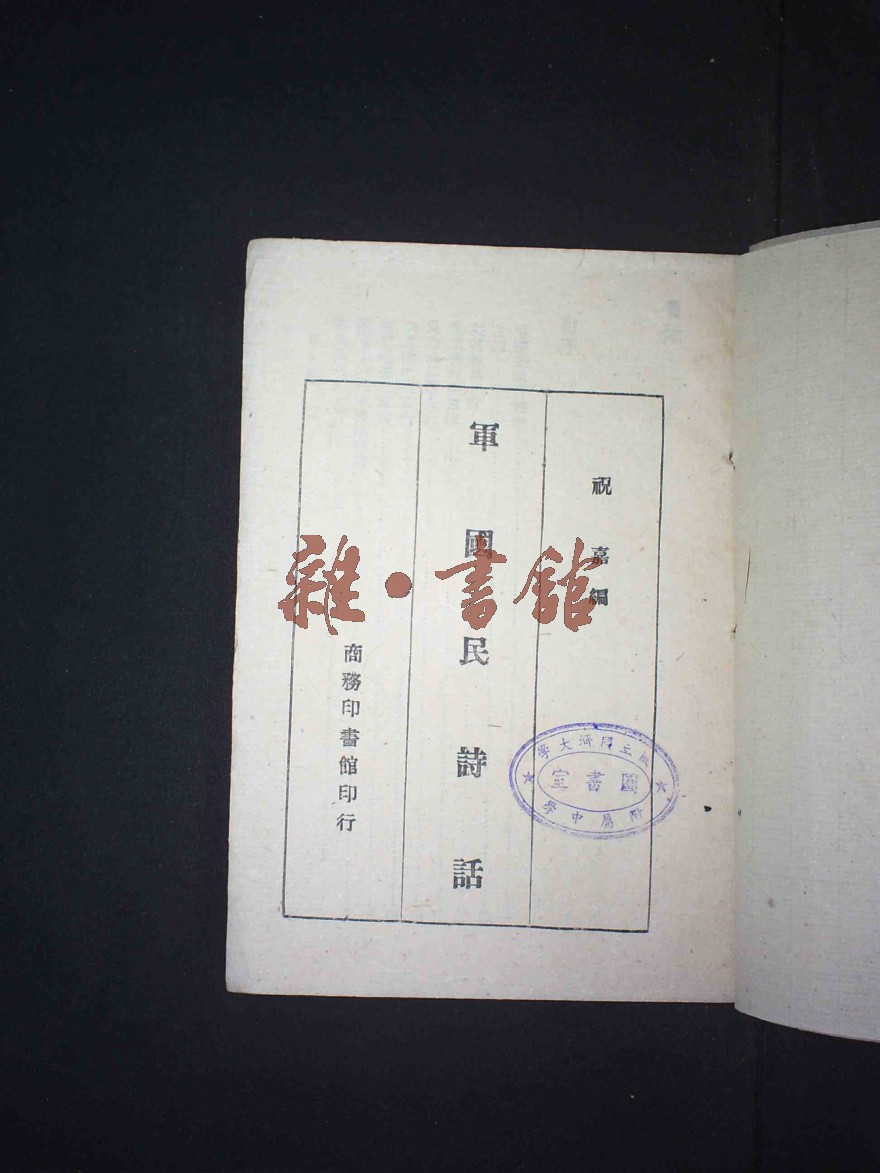 祝嘉編
軍國民詩話
商務印書館印行
雜·書館
國立同濟大學
圖書室
附屬中學